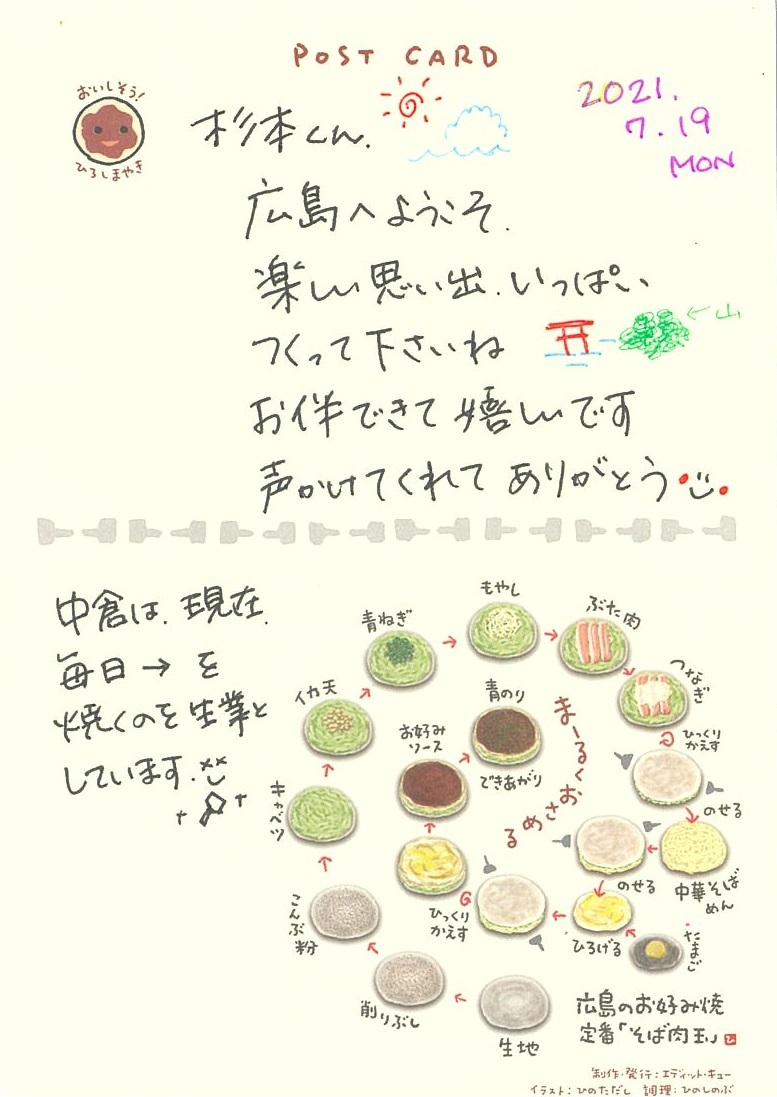 POST CARD
おいしそう!
ひろしまやき
2021.
7.19
MON
杉本くん.
広島へようこそ.
楽しい思い出.いっぱい
つくって下さいね
←山
お伴できて嬉しいです
声かけてくれてありがとう
中倉は.現在.
毎日→を
焼くのを生業と
しています.
もやし
青ねぎ
ぶた肉
つなぎ
イカ天
お好み
ソース
青のり
できあがり
まーるくおさめる
ひっくり
かえす
のせる
キャベツ
中華そば
めん
のせる
ひっくり
かえす
ひろげる
たまご
こんぶ粉
削りぶし
生地
広島のお好み焼
定番「そば肉玉」
ひ
制作・発行:エディット・キュー
イラスト:ひのただし 調理:ひのしのぶ